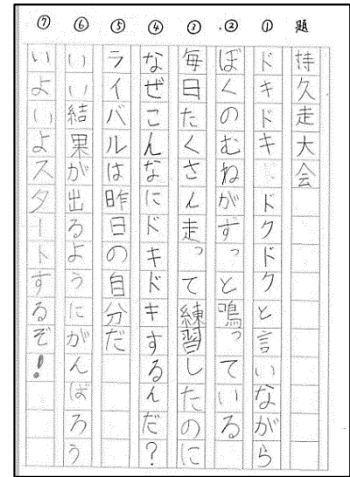 題 持久走大会
① ドキドキ ドクドクと言いながら
② ぼくのむねがずっと鳴っている
③ 毎日たくさん走って練習したのに
④ なぜこんなにドキドキするんだ?
⑤ ライバルは昨日の自分だ
⑥ いい結果が出るようにがんばろう
⑦ いよいよスタートするぞ!